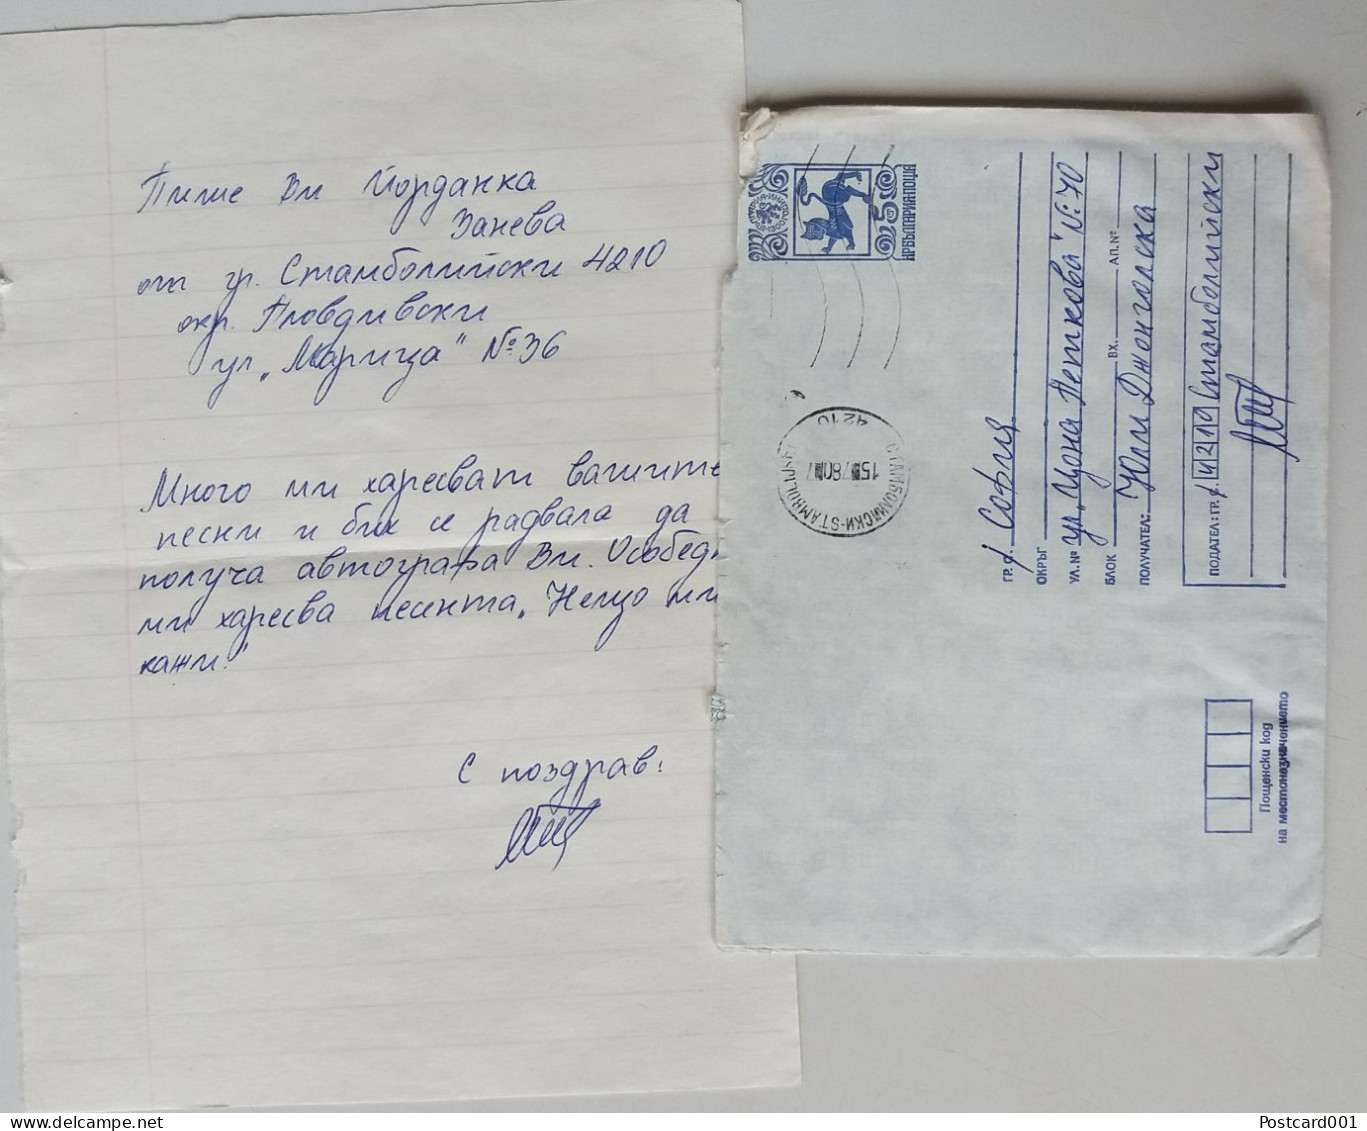 Пише Ви Йорданка
Занева
от гр. Стамболийски 4210
окр. Пловдивски
ул. „Марица" № 36
Много ми харесват вашите
песни и бих се радвала да
получа автографа Ви. Особен
ми харесва песента „Нещо ми
кажи."
С поздрав:
НР БЪЛГАРИЯ·ПОЩА
5
СТАМБОЛИЙСКИ-STAMBOLIJSKI
15 7 80
4210
ГР. с. София
ОКРЪГ
УЛ. № ул. „Цона Петкова" №: 40
БЛОК ВХ. АП. №
ПОЛУЧАТЕЛ: Юли Джонголска
ПОДАТЕЛ: ГР. с. 4210 Стамболийски
Пощенски код
на местоназначението
Postcard001